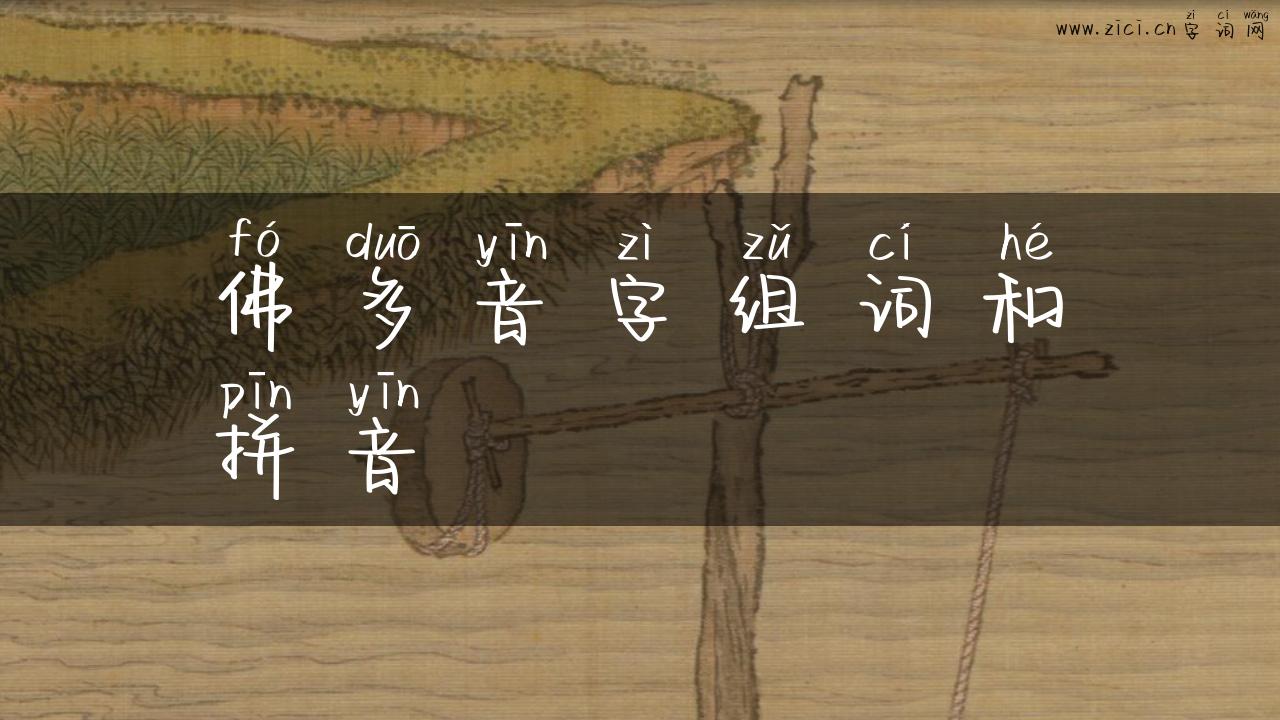 zì cí wǎng
www.zici.cn 字词网
fó duō yīn zì zǔ cí hé
佛多音字组词和
pīn yīn
拼音